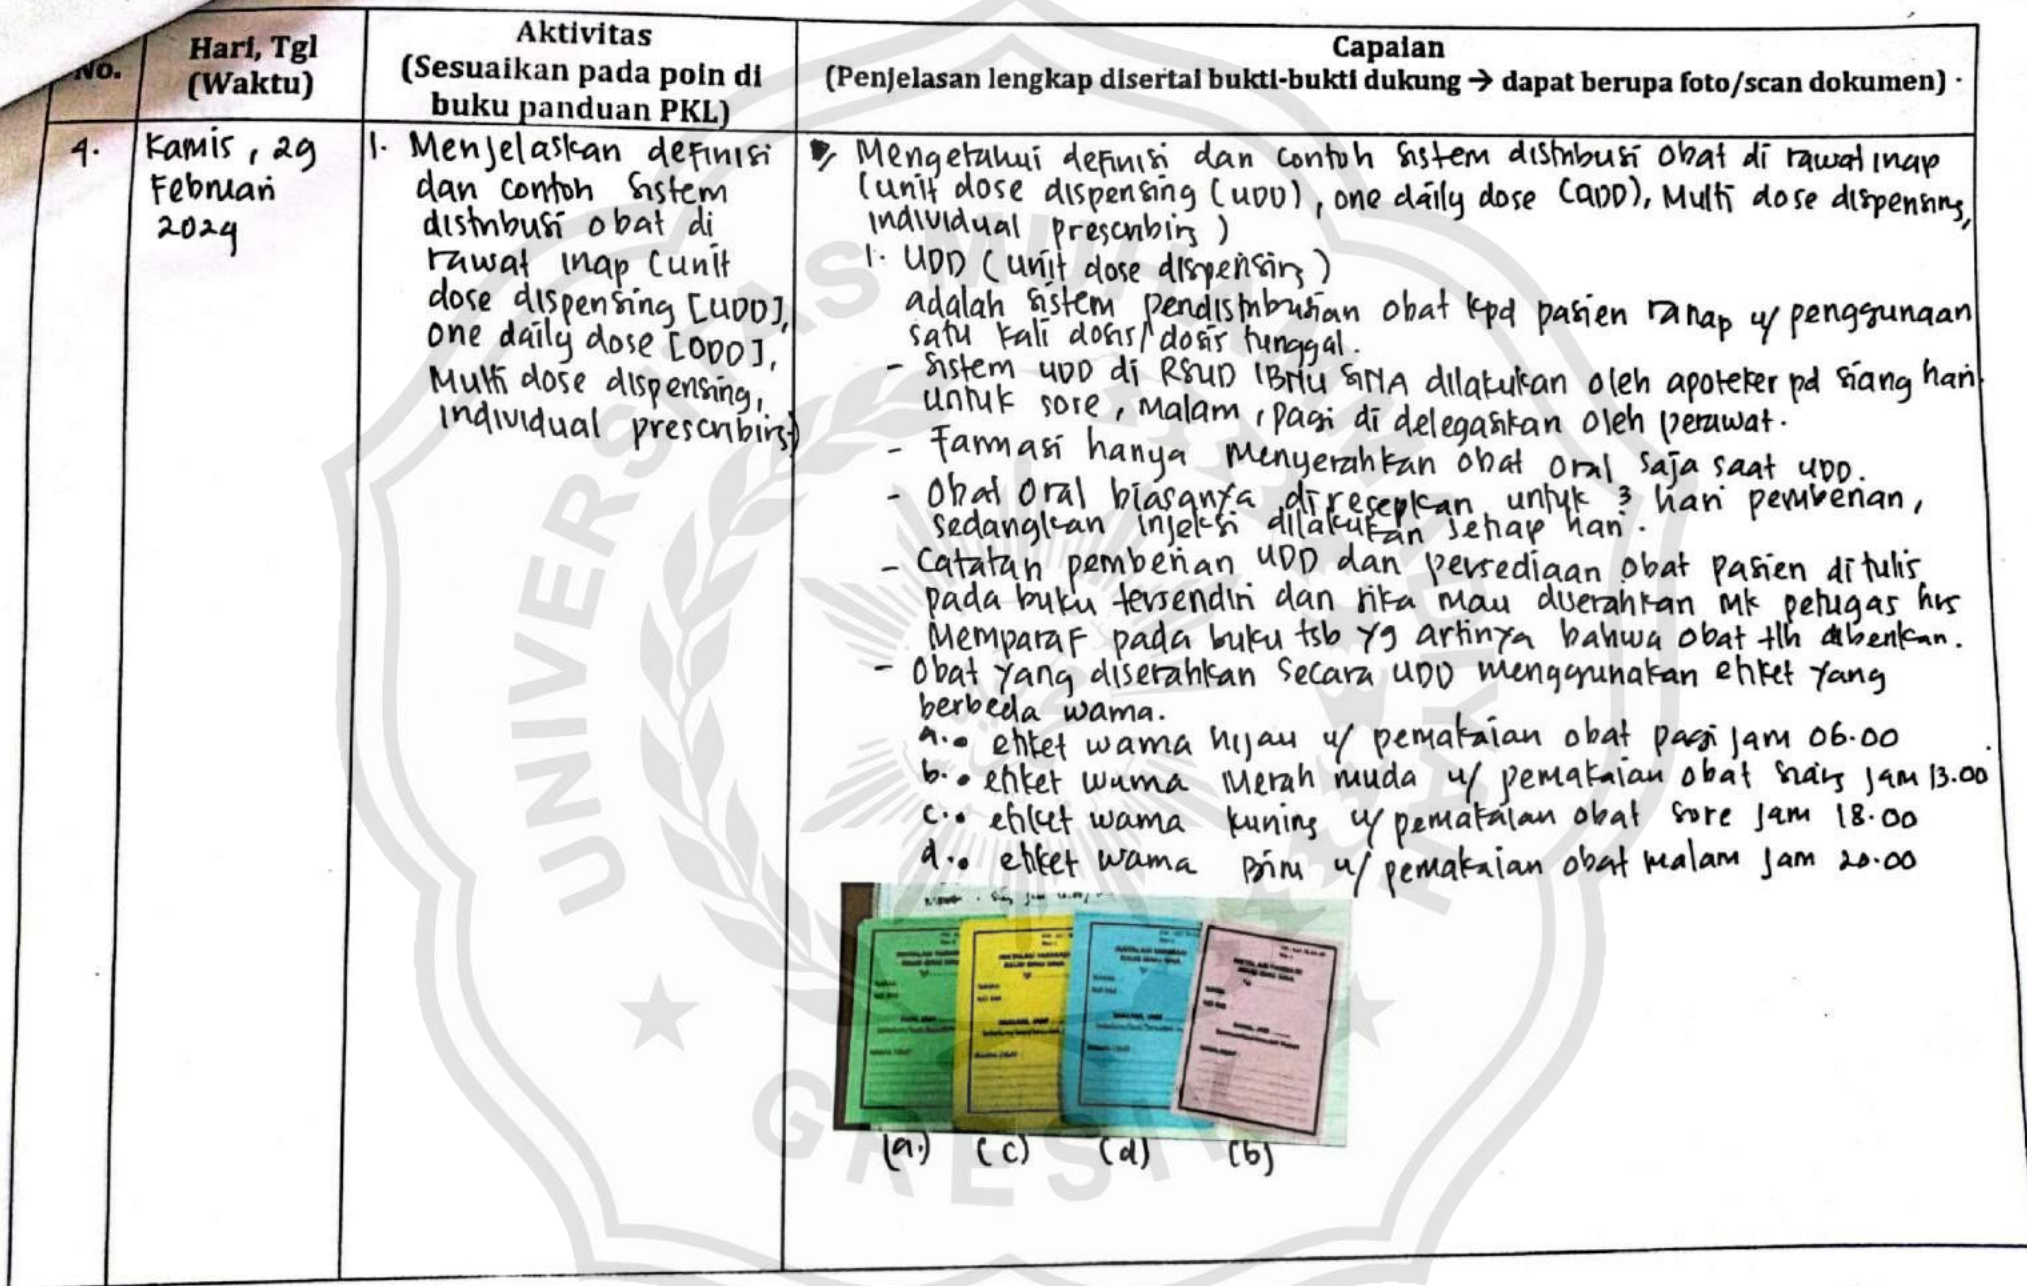 No.
Hari, Tgl
(Waktu)
Aktivitas
(Sesuaikan pada poin di
buku panduan PKL)
Capaian
(Penjelasan lengkap disertai bukti-bukti dukung → dapat berupa foto/scan dokumen)
4.
Kamis, 29
Februari
2024
1. Menjelaskan definisi
dan contoh sistem
distribusi obat di
rawat inap (unit
dose dispensing [UDD],
one daily dose [ODD],
Multi dose dispensing,
individual prescribing)
Mengetahui definisi dan contoh sistem distribusi obat di rawat inap
(unit dose dispensing (UDD), one daily dose (ODD), Multi dose dispensing,
individual prescribing)
1. UDD (unit dose dispensing)
adalah sistem pendistribusian obat kpd pasien ranap u/ penggunaan
satu kali dosis/dosis tunggal.
- Sistem UDD di RSUD IBNU SINA dilakukan oleh apoteker pd siang hari
untuk sore, malam, pagi di delegasikan oleh perawat.
- Farmasi hanya menyerahkan obat oral saja saat UDD.
- Obat oral biasanya diresepkan untuk 3 hari pemberian,
sedangkan injeksi dilakukan setiap hari.
- Catatan pemberian UDD dan persediaan obat pasien ditulis
pada buku tersendiri dan jika mau diserahkan mk petugas hrs
Memparaf pada buku tsb yg artinya bahwa obat tlh diberikan.
- Obat yang diserahkan secara UDD menggunakan etiket yang
berbeda warna.
a. • etiket warna hijau u/ pemakaian obat pagi jam 06.00
b. • etiket warna merah muda u/ pemakaian obat siang jam 13.00
c. • etiket warna kuning u/ pemakaian obat sore jam 18.00
d. • etiket warna Biru u/ pemakaian obat malam jam 20.00
(a.) (c) (d) (b)
UNIVERSITAS MUHAMMADIYAH
GRESIK